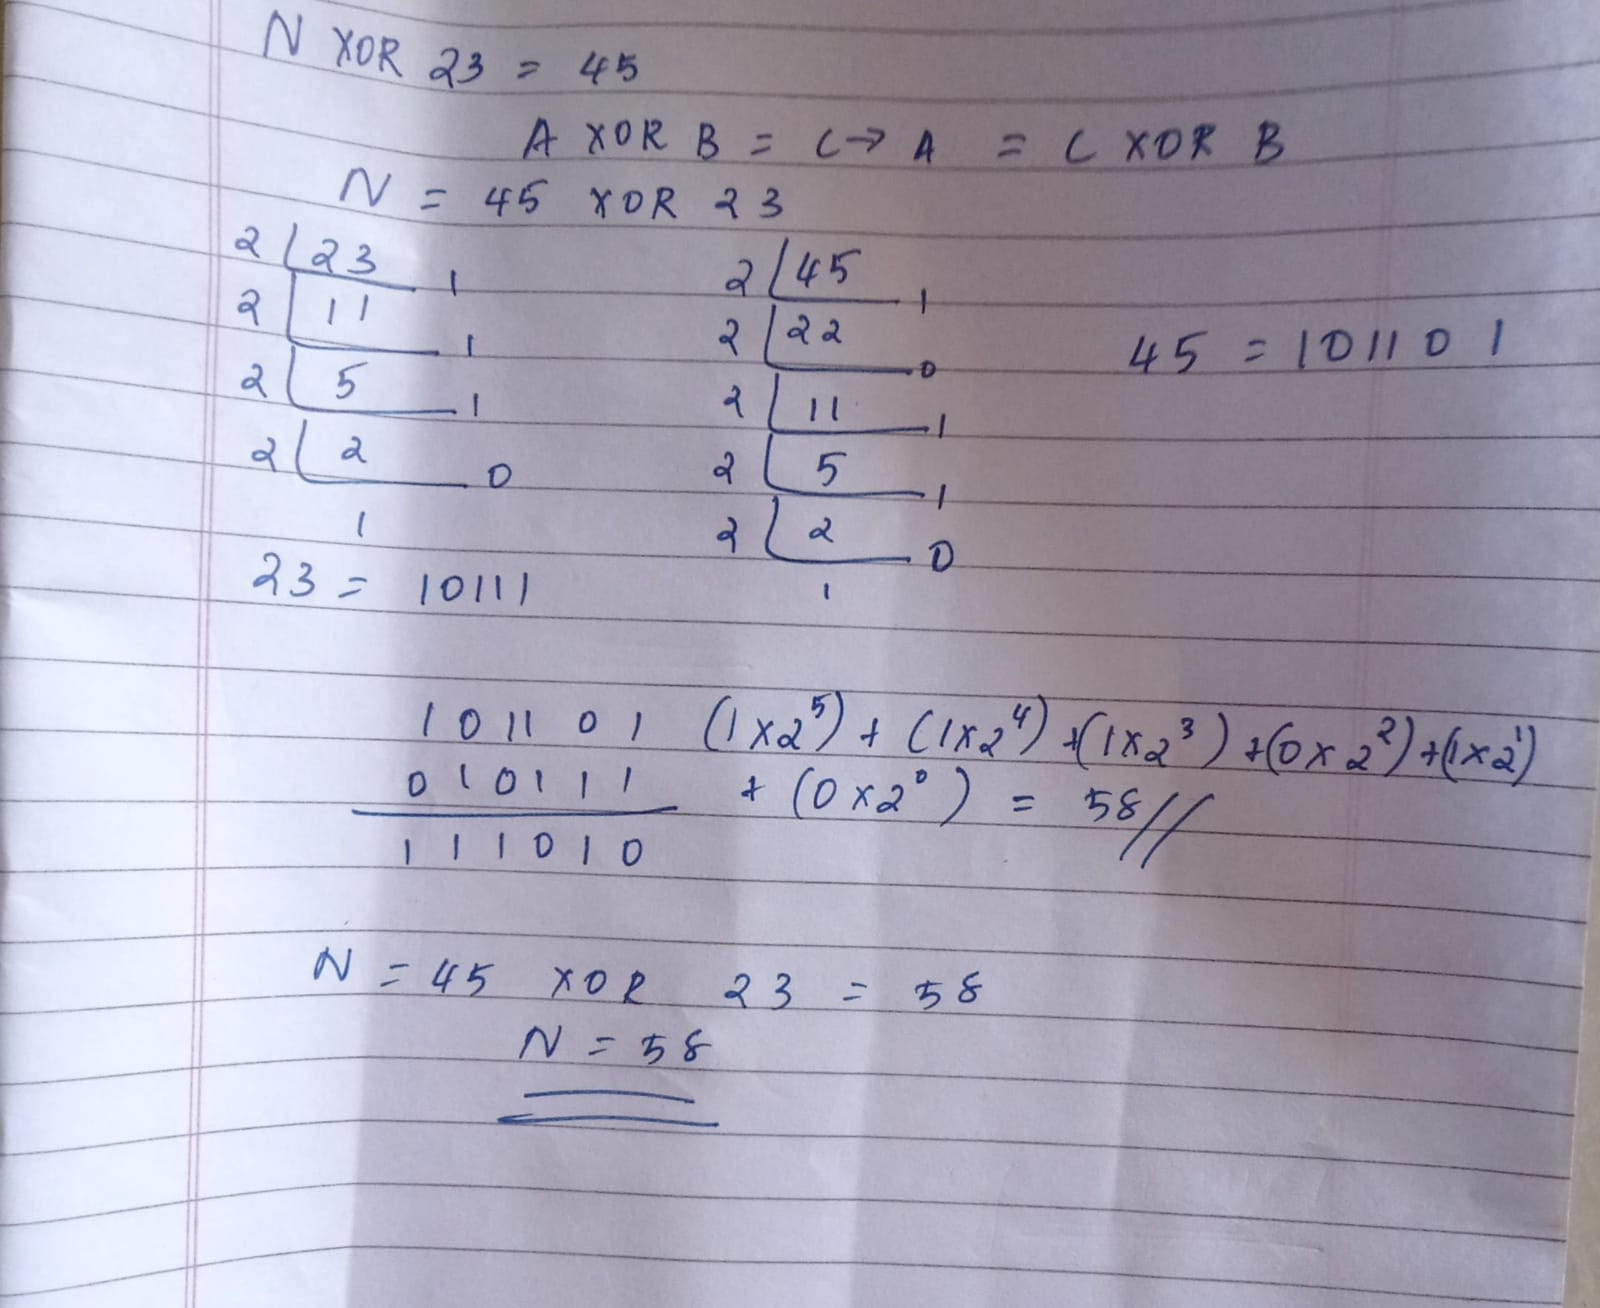 N XOR 23 = 45
A XOR B = C → A = C XOR B
N = 45 XOR 23
2 23 1
2 11 1
2 5 1
2 2 0
1
23 = 10111
2 45 1
2 22 0
2 11 1
2 5 1
2 2 0
1
45 = 101101
101101
010111
111010
(1x2⁵) + (1x2⁴) + (1x2³) + (0x2²) + (1x2¹)
+ (0x2⁰) = 58//
N = 45 XOR 23 = 58
N = 58